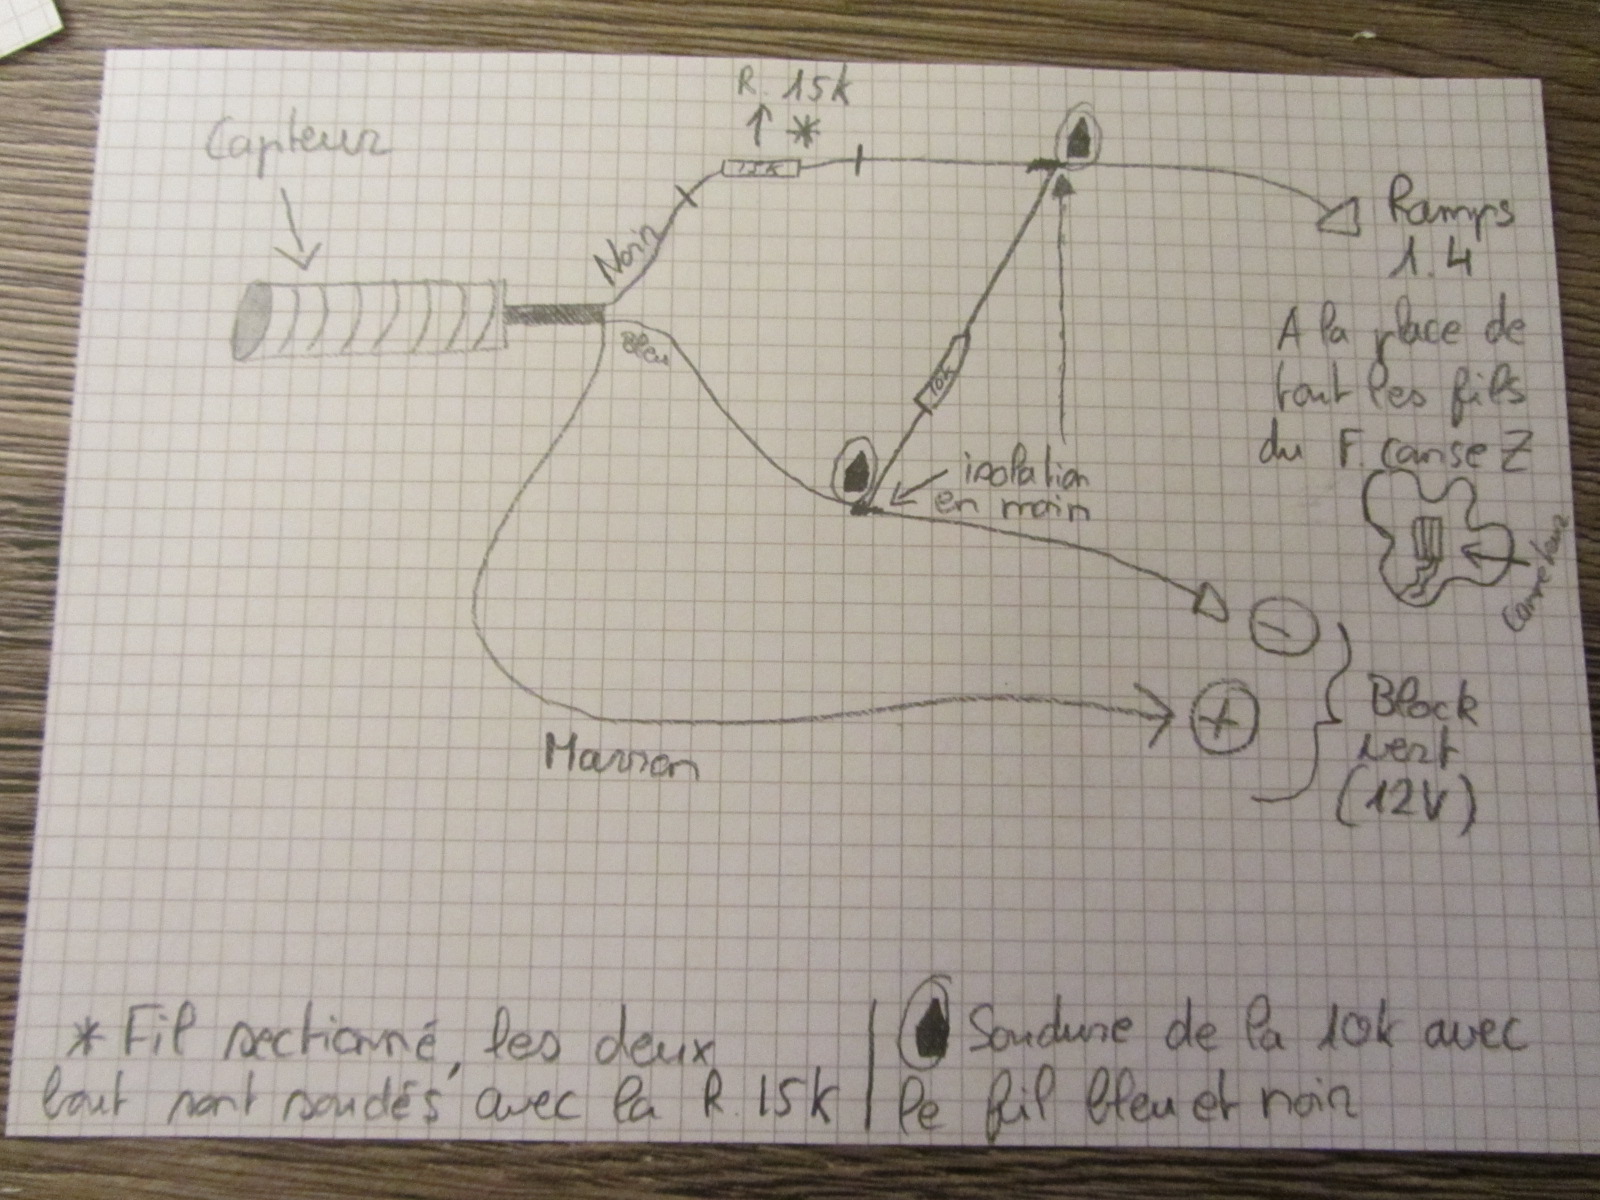 R. 15k
*
Capteur
15k
Noir
Ramps
1.4
Bleu
A la place de
tout les fils
du F. course Z
10k
isolation
en main
Connecteur
-
+
Block
vert
(12V)
Marron
* Fil sectionné, les deux
bout sont soudés avec la R 15k
Soudure de la 10k avec
le fil bleu et noir